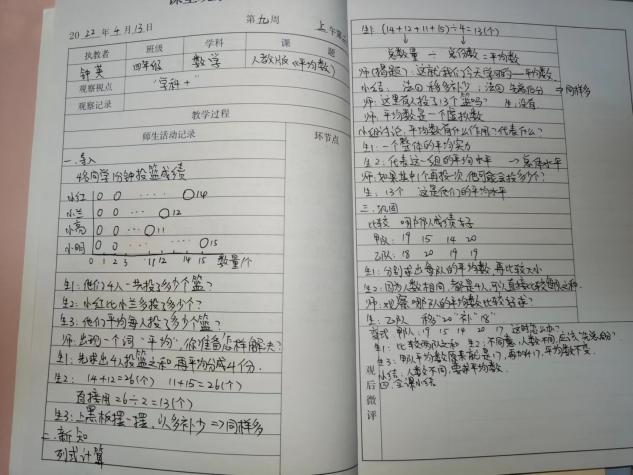 2022年4月13日 第九周 上午第
执教者 班级 学科 课题
钟英 四年级 数学 人教版《平均数》
观察视点 "学科+"
观察记录
教学过程
师生活动记录 环节点
一.导入
4名同学1分钟投篮成绩
小红 0 0 ···· 14
小兰 0 0 ··· 12
小亮 0 0 ··· 11
小明 0 0 ···· 15
0 1 2 3 11 12 14 15 数量/个
生1:他们4人一共投了多少个篮?
生2:小红比小兰多投了多少个?
生3:他们平均每人投了多少个篮?
师:出现一个词"平均",你准备怎样解决?
生1:先求出4人投篮之和再平均分成4份.
生2: 14+12=26(个) 11+15=26(个)
直接用26÷2=13(个)
生3:上黑板摆一摆,以多补少⇒同样多
二.新知
列式计算
生1: (14+12+11+15)÷4=13(个)
总数量 ÷ 总份数=平均数
师(揭题):这就是我们今天学习的—平均数
小结: 法① 移多补少; 法② 先总后分 ⇒同样多
师:这里有人投了13个篮吗? 生:没有
师:平均数是一个虚拟数
小组讨论:平均数有什么作用?代表什么?
生1:一个整体的平均实力
生2:代表这一组的平均水平 →总体水平
师:如果其中1个再投一次,他可能会投多少个?
生: 13个 这是他们的平均水平
三.巩固
比较 哪队成绩好
甲队: 19 15 14 20
乙队: 18 20 19 19
生1:分别求出每队的平均数,再比较大小
生2:因为人数相同,都是4人,可以直接比较每队之和.
师:观察哪队的平均数比较好求?
生:乙队 移"20"补"18"
变式 甲队: 19 15 14 20 17,这时怎么办?
生1:比较两队之和 生2:不同意,人数不同,应该"先总后分"
生3:甲队平均数原来就是17,再加个17,平均数不变.
小结:人数不同,要求平均数.
四.全课小结
观后微评